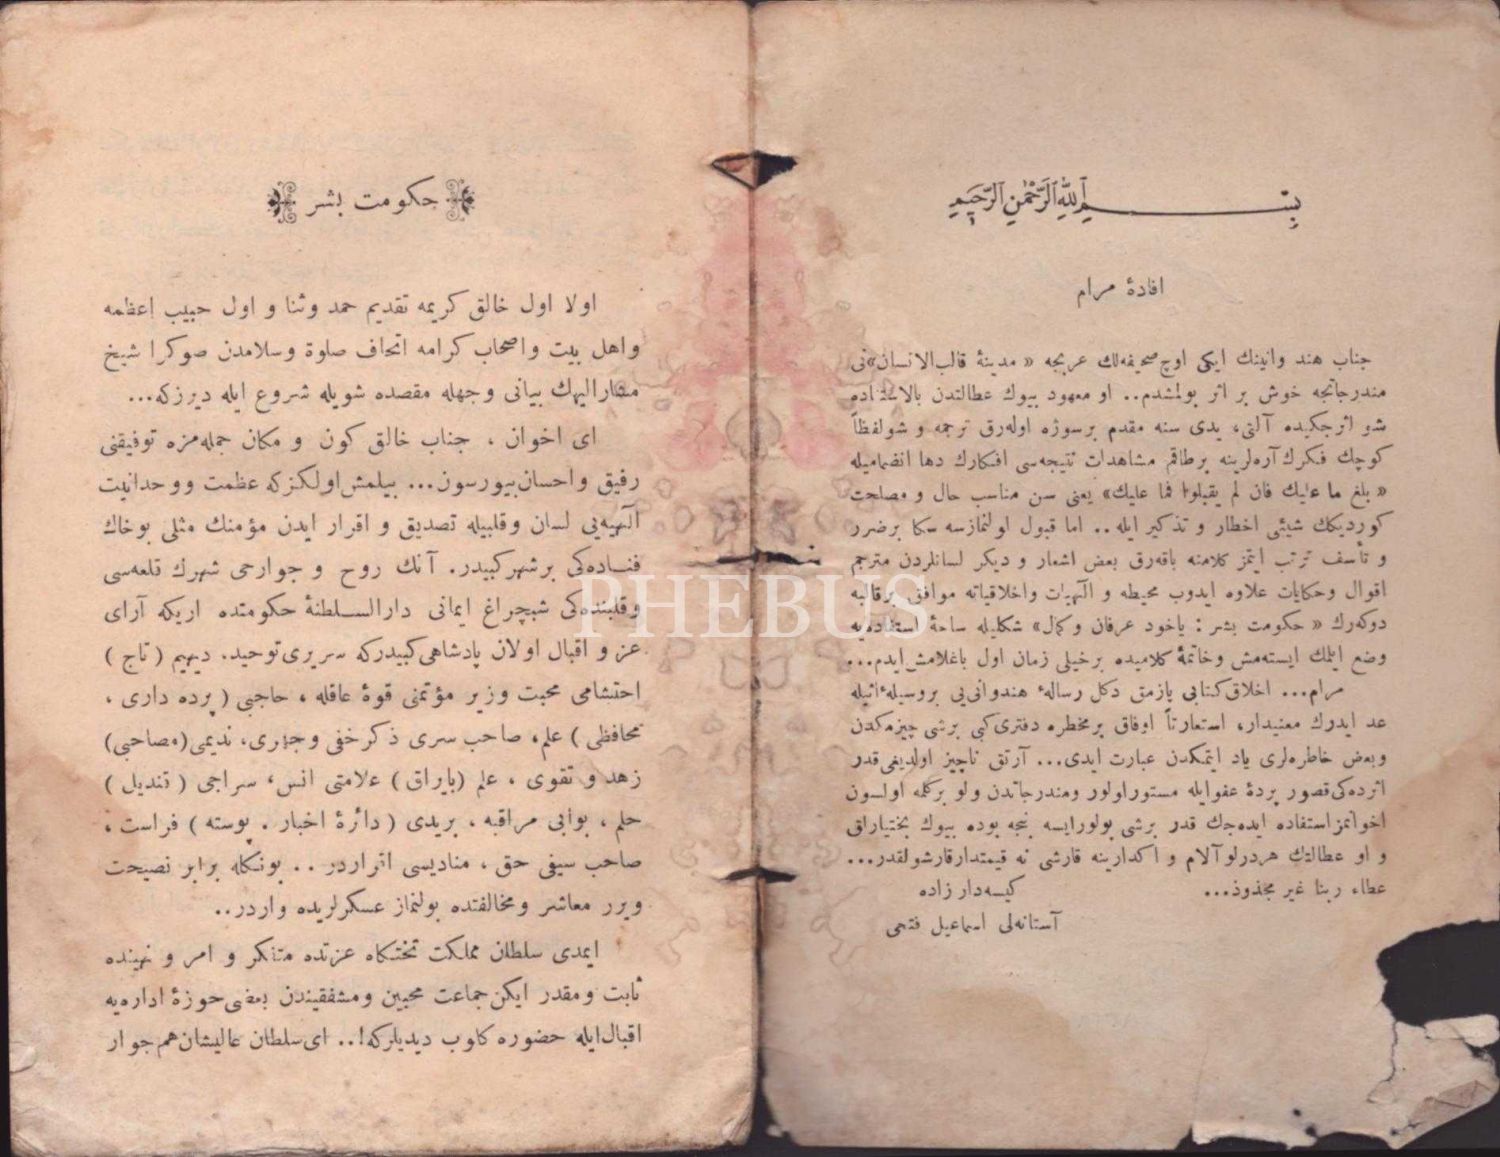 بسم الله الرحمن الرحيم
افادۀ مرام
جناب هند وانينك ايكى اوچ صحيفه‌لك عربجه « مدينۀ قالب‌الانسان»نى
مندرجاتجه خوش بر اثر بولمشدم.. او معهود بيوك عطالتدن بالاستفاده
شو اثرجكيده آلتى، يدى سنه مقدم برسوزه اوله‌رق ترجمه و شولفظاً
كوچك فكرك آره‌لرينه برطاقم مشاهدات نتيجه‌سى افكارك دها انضماميله
« بلغ ما عليك فان لم يقبلوا فما عليك» يعنى سن مناسب حال و مصلحت
كورديكك شيئى اخطار و تذكير ايله.. اما قبول اولنمازسه سكا برضرر
و تأسف ترتب ايتمز كلامنه باقه‌رق بعض اشعار و ديكر لسانلردن مترجم
اقوال وحكايات علاوه ايدوب محيطه و الهيات واخلاقياته موافق برقالبه
دوكه‌رك « حكومت بشر : ياخود عرفان وكمل» شكليله ساحۀ استفاده‌يه
وضع ايلمك ايسته‌مش وخاتمۀ كلاميده برخيلى زمان اول باغلامش‌ايدم...
مرام... اخلاق‌كتابى يازمق دكل رسالۀ هندوانى‌يى بروسيله‌اتيله
عد ايدرك معنيدار، استعارتاً اوفاق برمخطره دفترى‌كبى برشى چيزمكدن
وبعض خاطره‌لرى ياد ايتمكدن عبارت ايدى... آرتق ناچيز اولديغى‌قدر
اثرده‌كى‌قصور پردۀ عفوايله مستوراولور ومندرجاتدن ولو بركلمه اولسون
اخوانمزاستفاده ايده‌جك قدر برشى بولورايسه بنجه بوده بيوك بختيارلق
و او عطالتك هردرلو آلام و اكدارينه قارشى نه قيمتدارقارشولقدر...
عطاء ربنا غير مجذوذ... كيسه‌دار زاده
آستانه‌لى اسماعيل فتحى
حكومت بشر
اولا اول خالق كريمه تقديم حمد وثنا و اول حبيب اعظمه
واهل بيت واصحاب كرامه اتحاف صلوة وسلامدن صوكرا شيخ
مشاراليهك بيانى وجهله مقصده شويله شروع ايله ديرزكه...
اى اخوان ، جناب خالق كون و مكان جمله‌مزه توفيقنى
رفيق واحسان‌بيورسون... بيلمش‌اولكزكه عظمت ووحدانيت
الهيه‌يى لسان وقلبيله تصديق و اقرار ايدن مؤمنك مثلى بوخاك
فناده‌كى برشهركبيدر. آنك روح و جوارحى شهرك قلعه‌سى
وقلبنده‌كى شبچراغ ايمانى دارالسلطنۀ حكومتده اريكه آراى
عز و اقبال اولان پادشاهى‌كبيدركه سريرى‌توحيد. ديهيم ( تاج )
احتشامى محبت وزير مؤتمنى قوۀ عاقله ، حاجبى ( پرده دارى ،
محافظى ) علم، صاحب سرى ذكرخفى وجهرى، نديمى(مصاحبى)
زهد و تقوى ، علم (بايراق ) علامتى انس، سراجى ( قنديل )
حلم ، بوابى مراقبه ، بريدى ( دائرۀ اخبار . پوسته ) فراست ،
صاحب سيفى حق ، مناديسى اقراردر .. بونكله برابر نصيحت
ويرر معاشر ومخالفتده بولنماز عسكرلريده واردر..
ايمدى سلطان مملكت تختكاه عزتده متفكر و امر و نهينده
ثابت ومقدر ايكن‌جماعت محبين ومشفقيندن بعضى‌حوزۀ اداره‌يه
اقبال‌ايله حضوره كلوب ديديلركه!.. اى‌سلطان عاليشان‌هم‌جوار
PHEBUS